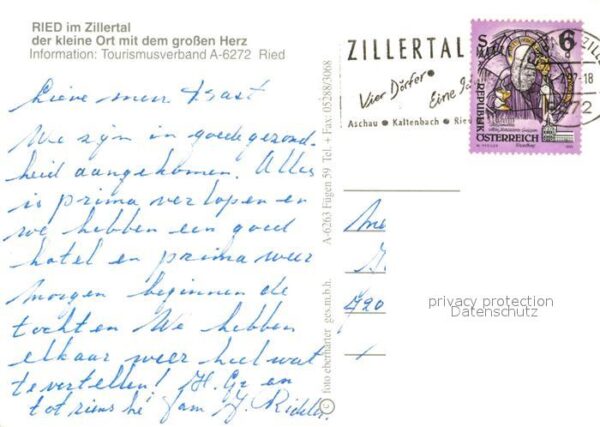 RIED im Zillertal
der kleine Ort mit dem großen Herz
Information: Tourismusverband A-6272 Ried
Lieve men
We zijn in goede gezond-
heid aangekomen. Alles
is prima verlopen en
we hebben een goed
hotel en prima weer
morgen beginnen de
tochten We hebben
elkaar weer heel wat
te vertellen! H. Gr en
tot ziens hé fam J.
© foto eberharter ges.m.b.h. A-6263 Fügen 59 Tel. + Fax: 05288/3068
ZILLERTAL
Vier Dörfer
Eine
Aschau • Kaltenbach • Ried
S 6
REPUBLIK
ÖSTERREICH
6272
920
privacy protection
Datenschutz